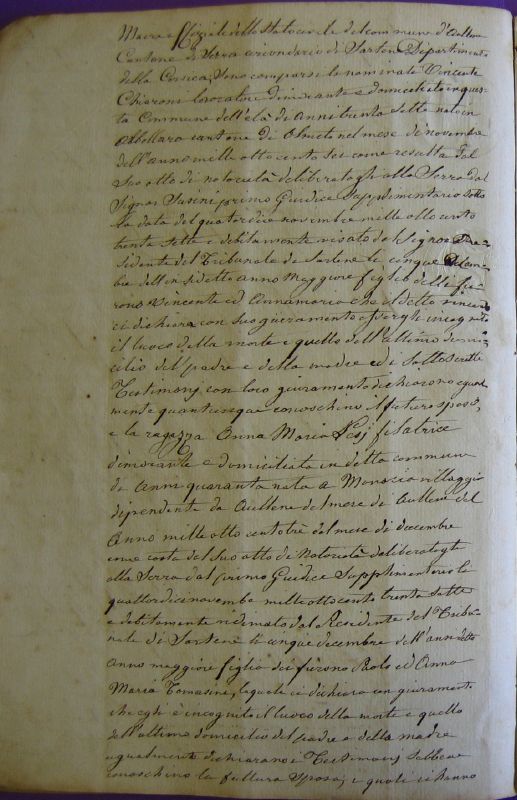 Maere Uffiziale dello Stato civile del commune d'Aullene
Cantone di Serra circondario di Sartene Dipartimento
della Corsica, Sono comparsi le nominati Vincente
Chiaroni lavoratore dimorante e domiciliato in ques-
ta Commune dell'età di anni trenta sette nato in
cantone di Olmeto nel mese di novembre
dell'anno mille otto cento sei come resulta dal
Suo atto di notorietà deliberatogli alla Serra dal
Signor Susini primo Giudice Supplimentario sotto
la data del quatordici novembre mille otto cento
trenta sette e debitamente visato dal Signor Pre-
sidente del Tribunale di Sartene li cinque decem-
bre dell'insidetto anno Maggiore figlio delle fu-
rono Vincente ed Annamaria che il detto vincen-
ci dichiara con suo giuramento essergli incognito
il luoco della morte e quello dell'ultimo domi-
cilio del padre e della madre ed i sottoscritti
Testimonj con loro giuramento dichiarono egual-
mente quantunque conoschino il futuro sposo,
e la ragazza Anna Maria filatrice
dimorante e domiciliata in detta commune
di anni quaranta nata a Monacia villaggio
dipendente da Aullene del mese di del
Anno mille otto cento tre del mese di decembre
come costa del suo atto di Notorietà deliberatogli
alla Serra dal primo Giudice Supplimentario li
quattordici novembre mille otto cento trenta sette
e debitamente vidimato dal Presidente del Tribu-
nale di Sartene li cinque decembre dell'an detto
anno maggiore figlia dei furono Paolo ed Anna
Maria Tomasini, la quale ci dichiara con giuramento
che egli è incognito il luoco della morte e quello
dell'ultimo domicilio del padre e della madre
egualmente dichiarano i Testimonj sebbene
conoschino la futtura sposa, i quali ci hanno